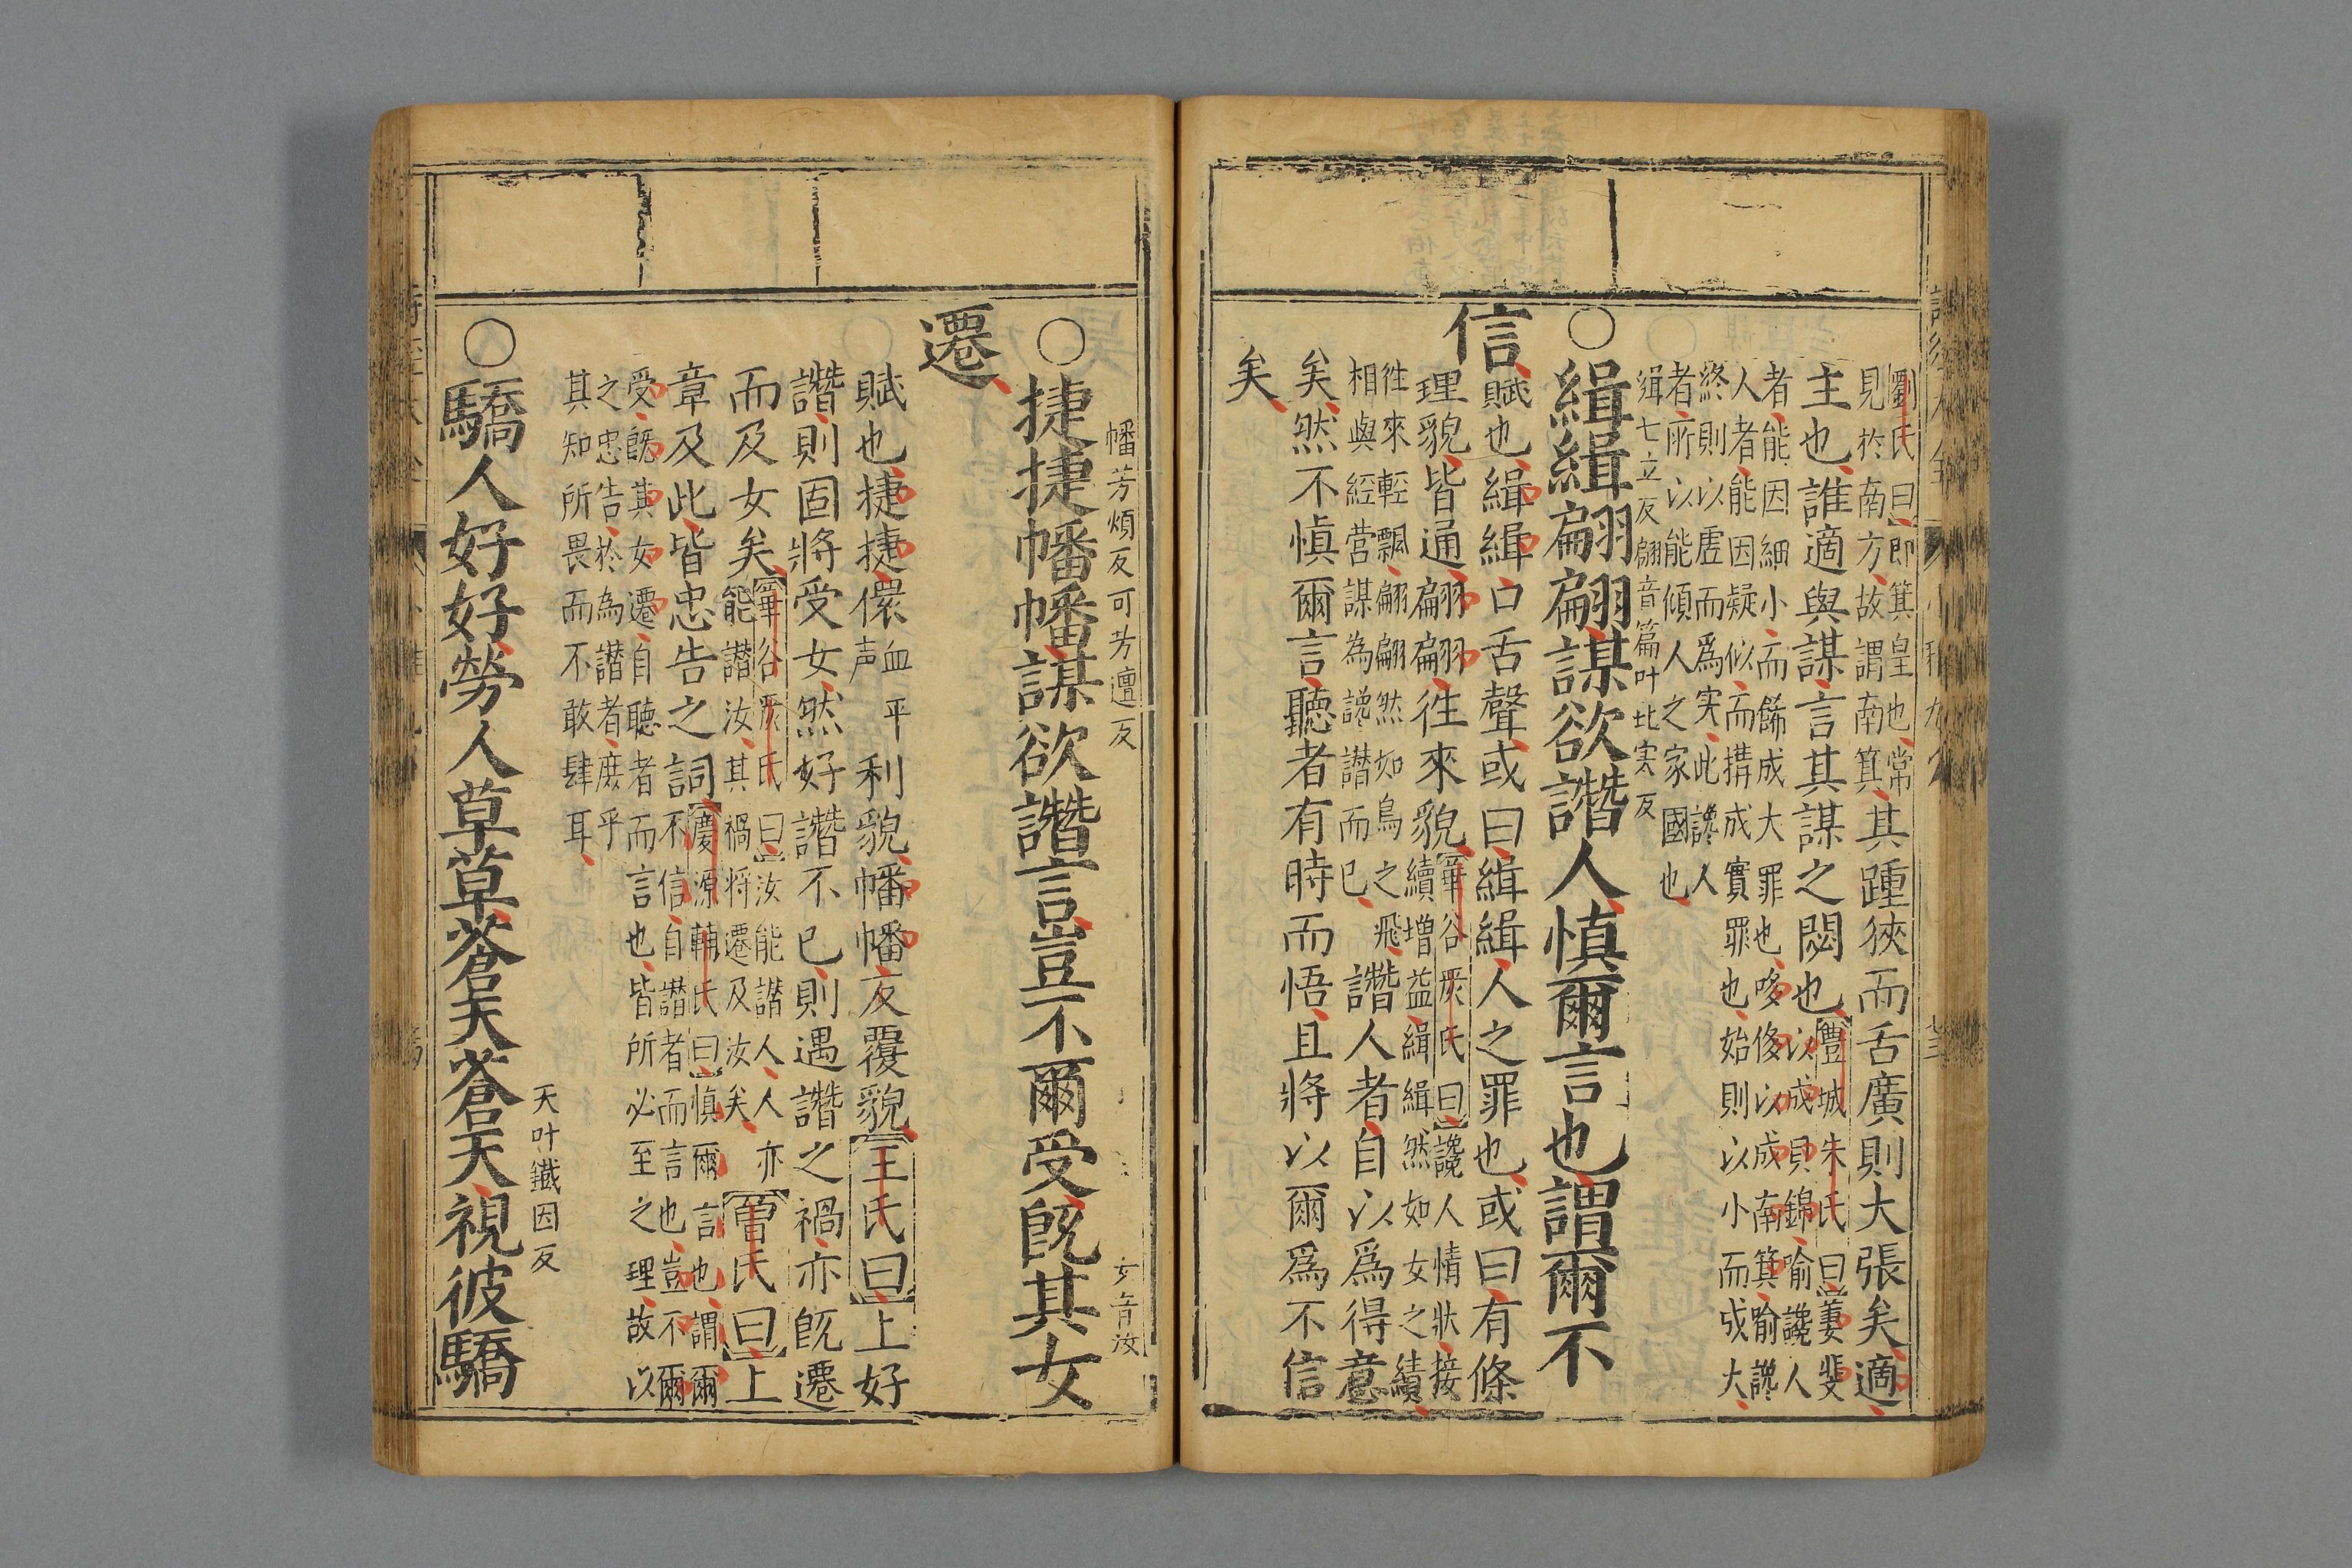 劉氏曰即箕皇也常
見於南方故謂南箕其踵狹而舌廣則大張矣適
主也誰適與謀言其謀之閟也豐城朱氏曰萋斐
以成貝錦喻讒人
者能因細小而餙成大罪也哆侈以成南箕喻讒
人者能因疑似而搆成實罪也始則以小而成大
終則以虗而爲実此讒人
者所以能傾人之家國也
緝七立反翩音篇叶批実反
○緝緝翩翩謀欲譖人慎爾言也謂爾不
信賦也緝緝口舌聲或曰緝緝人之罪也或曰有條
理貌皆通翩翩徃來貌華谷嚴氏曰讒人情狀接
續增益緝緝然如女之績
徃來輕飄翩翩然如鳥之飛
相與經营謀為讒譖而已譖人者自以爲得意
矣然不慎爾言聽者有時而悟且將以爾爲不信
矣
幡芳煩反可芳邅反 女音汝
○捷捷幡幡謀欲譖言豈不爾受旣其女
遷
賦也捷捷儇利貌幡幡反覆貌王氏曰上好
譖則固將受女然好譖不已則遇譖之禍亦旣遷
而及女矣華谷嚴氏曰汝能譖人人亦
能譖汝其禍将遷及汝矣曾氏曰上
章及此皆忠告之詞慶源輔氏曰慎爾言也謂爾
不信自譖者而言也豈不爾
受旣其女遷自聽者而言也皆所必至之理故以
之忠告於為譖者庻乎
其知所畏而不敢肆耳
天叶鐵因反
○驕人好好勞人草草蒼天蒼天視彼驕